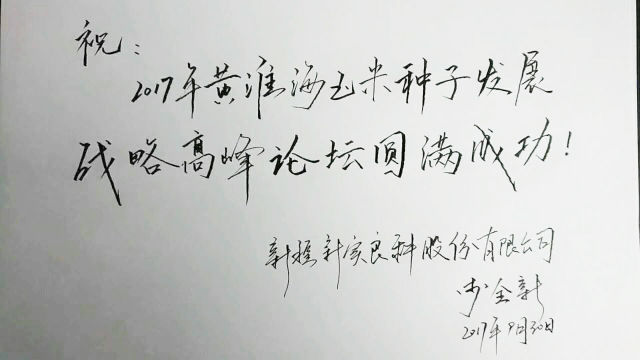 祝：
2017年黄淮海玉米种子发展
战略高峰论坛圆满成功！
新疆新实良种股份有限公司
全新
2017年9月30日